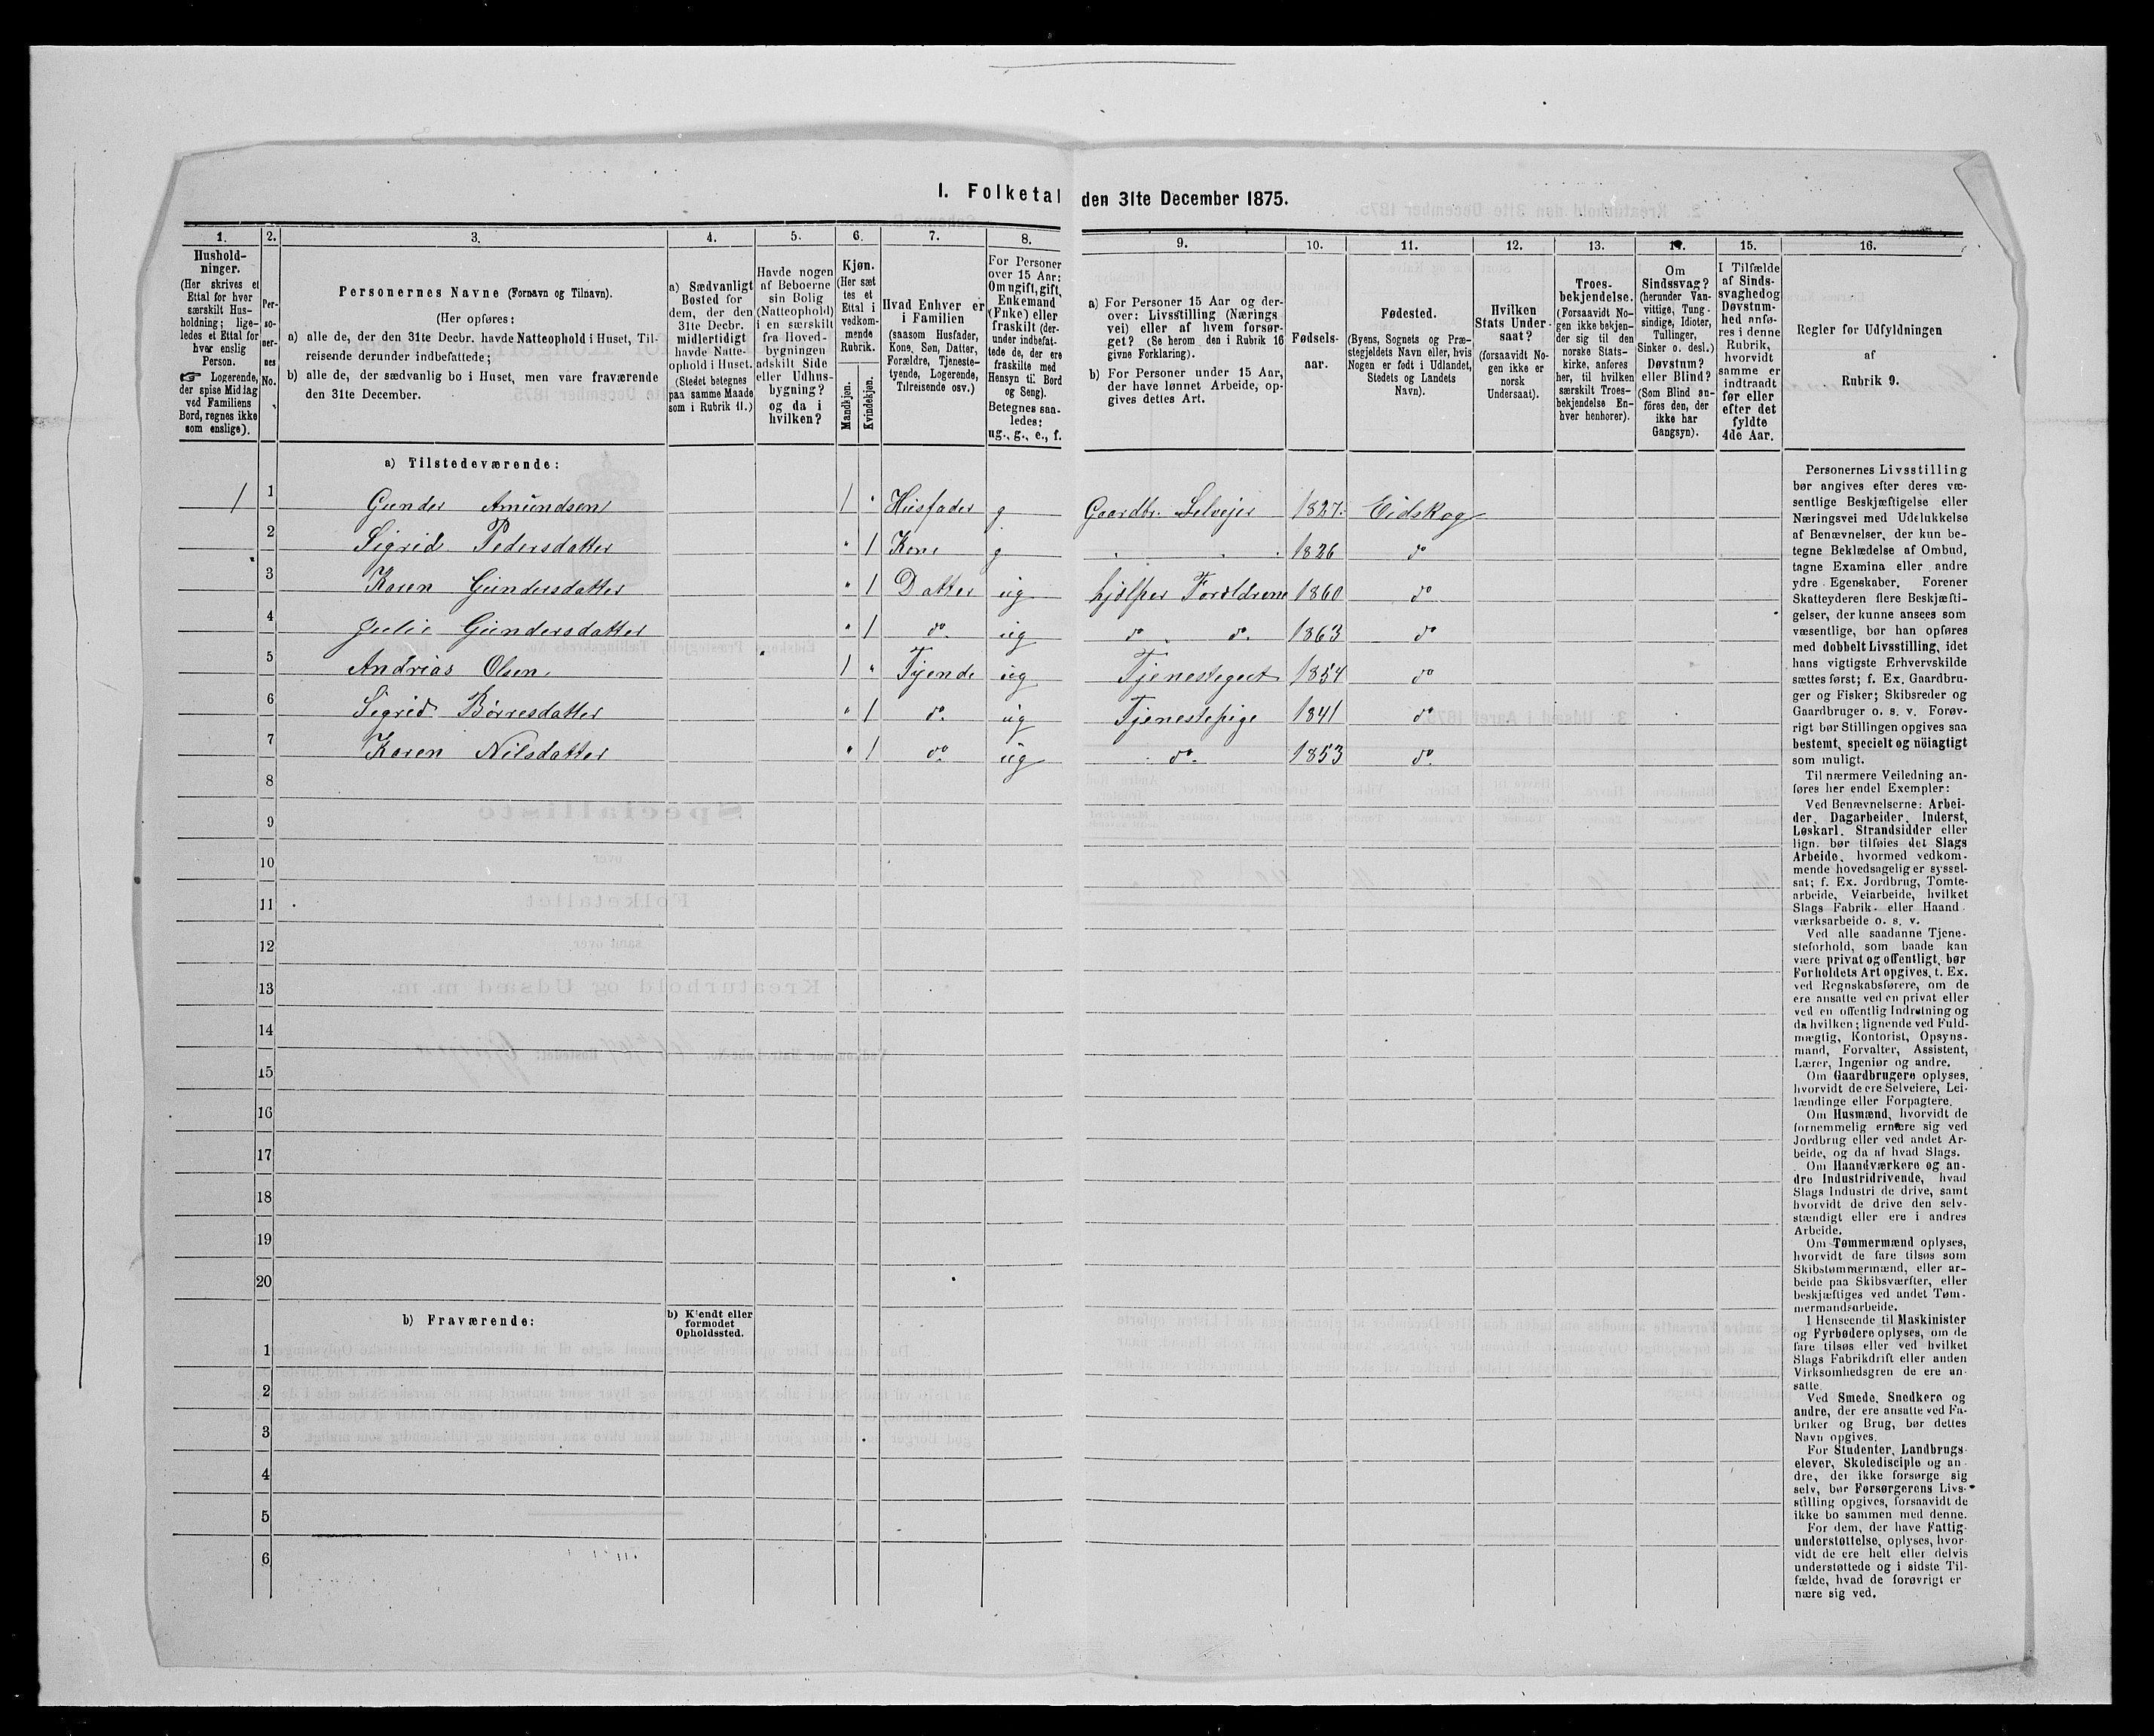 I. Folketal den 31te December 1875.
1. 2. 3. 4. 5. 6. 7. 8. 9. 10. 11. 12. 13. 14. 15. 16.
Hushold-
ninger.
(Her skrives et
Ettal for hver
særskilt Hus-
holdning; lige-
ledes et Ettal for
hver enslig
Person.
☞ Logerende,
der spise Middag
ved Familiens
Bord, regnes ikke
som enslige).
Per-
so-
ner-
nes
No.
Personernes Navne (Fornavn og Tilnavn).
(Her opføres:
a) alle de, der den 31te Decbr. havde Natteophold i Huset, Til-
reisende derunder indbefattede;
b) alle de, der sædvanlig bo i Huset, men vare fraværende
den 31te December.
a) Sædvanligt
Bosted for
dem, der den
31te Decbr.
midlertidigt
havde Natte-
ophold i Huset.
(Stedet betegnes
paa samme Maade
som i Rubrik 11.)
Havde nogen
af Beboerne
sin Bolig
(Natteophold)
i en særskilt
fra Hoved-
bygningen
adskilt Side
eller Udhus-
bygning?
og da i
hvilken?
Kjøn.
(Her sæt
tes et
Ettal i
vedkom-
mende
Rubrik.
Mandkjøn.
Kvindekjøn.
Hvad Enhver er
i Familien
(saasom Husfader,
Kone, Søn, Datter,
Forældre, Tjeneste-
tyende, Logerende,
Tilreisende osv.)
For Personer
over 15 Aar:
Om ugift, gift,
Enkemand
(Enke) eller
fraskilt (der-
under indbefat-
tede de, der ere
fraskilte med
Hensyn til Bord
og Seng).
Betegnes saa-
ledes:
ug., g., e., f.
a) For Personer 15 Aar og der-
over: Livsstilling (Nærings
vei) eller af hvem forsør-
get? (Se herom den i Rubrik 16
givne Forklaring).
b) For Personer under 15 Aar,
der have lønnet Arbeide, op-
gives dettes Art.
Fødsels-
aar.
Fødested.
(Byens, Sognets og Præ-
stegjeldets Navn eller, hvis
Nogen er født i Udlandet,
Stedets og Landets
Navn).
Hvilken
Stats Under-
saat?
(forsaavidt No-
gen ikke er
norsk
Undersaat).
Troes-
bekjendelse.
(Forsaavidt No-
gen ikke bekjen-
der sig til den
norske Stats-
kirke, anføres
her, til hvilken
særskilt Troes-
bekjendelse En-
hver henhører).
Om
Sindssvag?
(herunder Van-
vittige, Tung-
sindige, Idioter,
Tullinger,
Sinker o. desl.)
Døvstum?
eller Blind?
(Som Blind an-
føres den, der
ikke har
Gangsyn).
I Tilfælde
af Sinds-
svaghed og
Døvstum-
hed anfø-
res i denne
Rubrik,
hvorvidt
samme er
indtraadt
før eller
efter det
fyldte
4de Aar.
Regler for Udfyldningen
af
Rubrik 9.
a) Tilstedeværende:
1 1 Gunder Amundsen 1 " Husfader g Gaardbr. Selvejer 1827. Eidskog
2 Sigrid Pedersdatter " 1 Kone g " " " 1826 do
3 Karen Gundersdatter " 1 Datter ug hjælper Forældrene 1860 do
4 Julie Gundersdatter " 1 do. ug do do. 1863 do
5 Andrias Olsen 1 " Tyende ug Tjenestegut 1854 do
6 Sigrid Børresdatter " 1 do. ug Tjenestepige 1841 do
7 Karen Nilsdatter " 1 do. ug do. 1853 do.
8
9
10
11
12
13
14
15
16
17
18
19
20
b) Fraværende:
b) Kjendt eller
formodet
Opholdssted.
1
2
3
4
5
6
Personernes Livsstilling
bør angives efter deres væ-
sentlige Beskjæftigelse eller
Næringsvei med Udelukkelse
af Benævnelser, der kun be-
tegne Beklædelse af Ombud,
tagne Examina eller andre
ydre Egenskaber. Forener
Skatteyderen flere Beskjæfti-
gelser, der kunne ansees som
væsentlige, bør han opføres
med dobbelt Livsstilling, idet
hans vigtigste Erhvervskilde
sættes først; f. Ex. Gaardbru-
ger og Fisker; Skibsreder og
Gaardbruger o. s. v. Forøv-
rigt bør Stillingen opgives saa
bestemt, specielt og nöiagtigt
som muligt.
Til nærmere Veiledning an-
føres her endel Exempler:
Ved Benævnelserne: Arbei-
der, Dagarbeider, Inderst,
Løskarl, Strandsidder eller
lign. bør tilføies det Slags
Arbeide, hvormed vedkom-
mende hovedsagelig er syssel-
sat; f. Ex. Jordbrug, Tomte-
arbeide, Veiarbeide, hvilket
Slags Fabrik- eller Haand-
værksarbeide o. s. v.
Ved alle saadanne Tjene-
steforhold, som baade kan
være privat og offentligt, bør
Forholdets Art opgives, t. Ex.
ved Regnskabsførere, om de
ere ansatte ved en privat eller
ved en offentlig Indretning og
da hvilken; lignende ved Fuld-
mægtig, Kontorist, Opsyns-
mand, Forvalter, Assistent,
Lærer, Ingeniør og andre.
Om Gaardbrugere oplyses,
hvorvidt de ere Selveiere, Lei-
lændinge eller Forpagtere.
Om Husmænd, hvorvidt de
fornemmelig ernære sig ved
Jordbrug eller ved andet Ar-
beide, og da af hvad Slags.
Om Haandværkere og an-
dre Industridrivende, hvad
Slags Industri de drive, samt
hvorvidt de drive den selv-
stændigt eller ere i andres
Arbeide.
Om Tømmermænd oplyses,
hvorvidt de fare tilsøs som
Skibstømmermænd, eller ar-
beide paa Skibsværfter, eller
beskjæftiges ved andet Tøm-
mermandsarbeide.
I Henseende til Maskinister
og Fyrbødere oplyses, om de
fare tilsøs eller ved hvilket
Slags Fabrikdrift eller anden
Virksomhedsgren de ere an-
satte.
Ved Smede, Snedkere og
andre, der ere ansatte ved Fa-
briker og Brug, bør dettes
Navn opgives.
For Studenter, Landbrugs-
elever, Skoledisciple og an-
dre, der ikke forsørge sig
selv, bør Forsørgerens Livs-
stilling opgives, forsaavidt de
ikke bo sammen med denne.
For dem, der have Fattig-
understøttelse, oplyses, hvor-
vidt de ere helt eller delvis
understøttede og i sidste Til-
fælde, hvad de forøvrigt er-
nære sig ved.